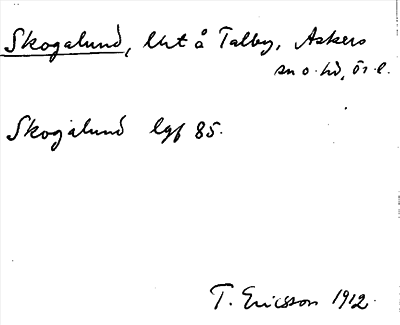 Skogalund, lht å Talby, Askers
sn o. hd, ör. l.
Skogalund lgf 85.
T. Ericsson 1912.